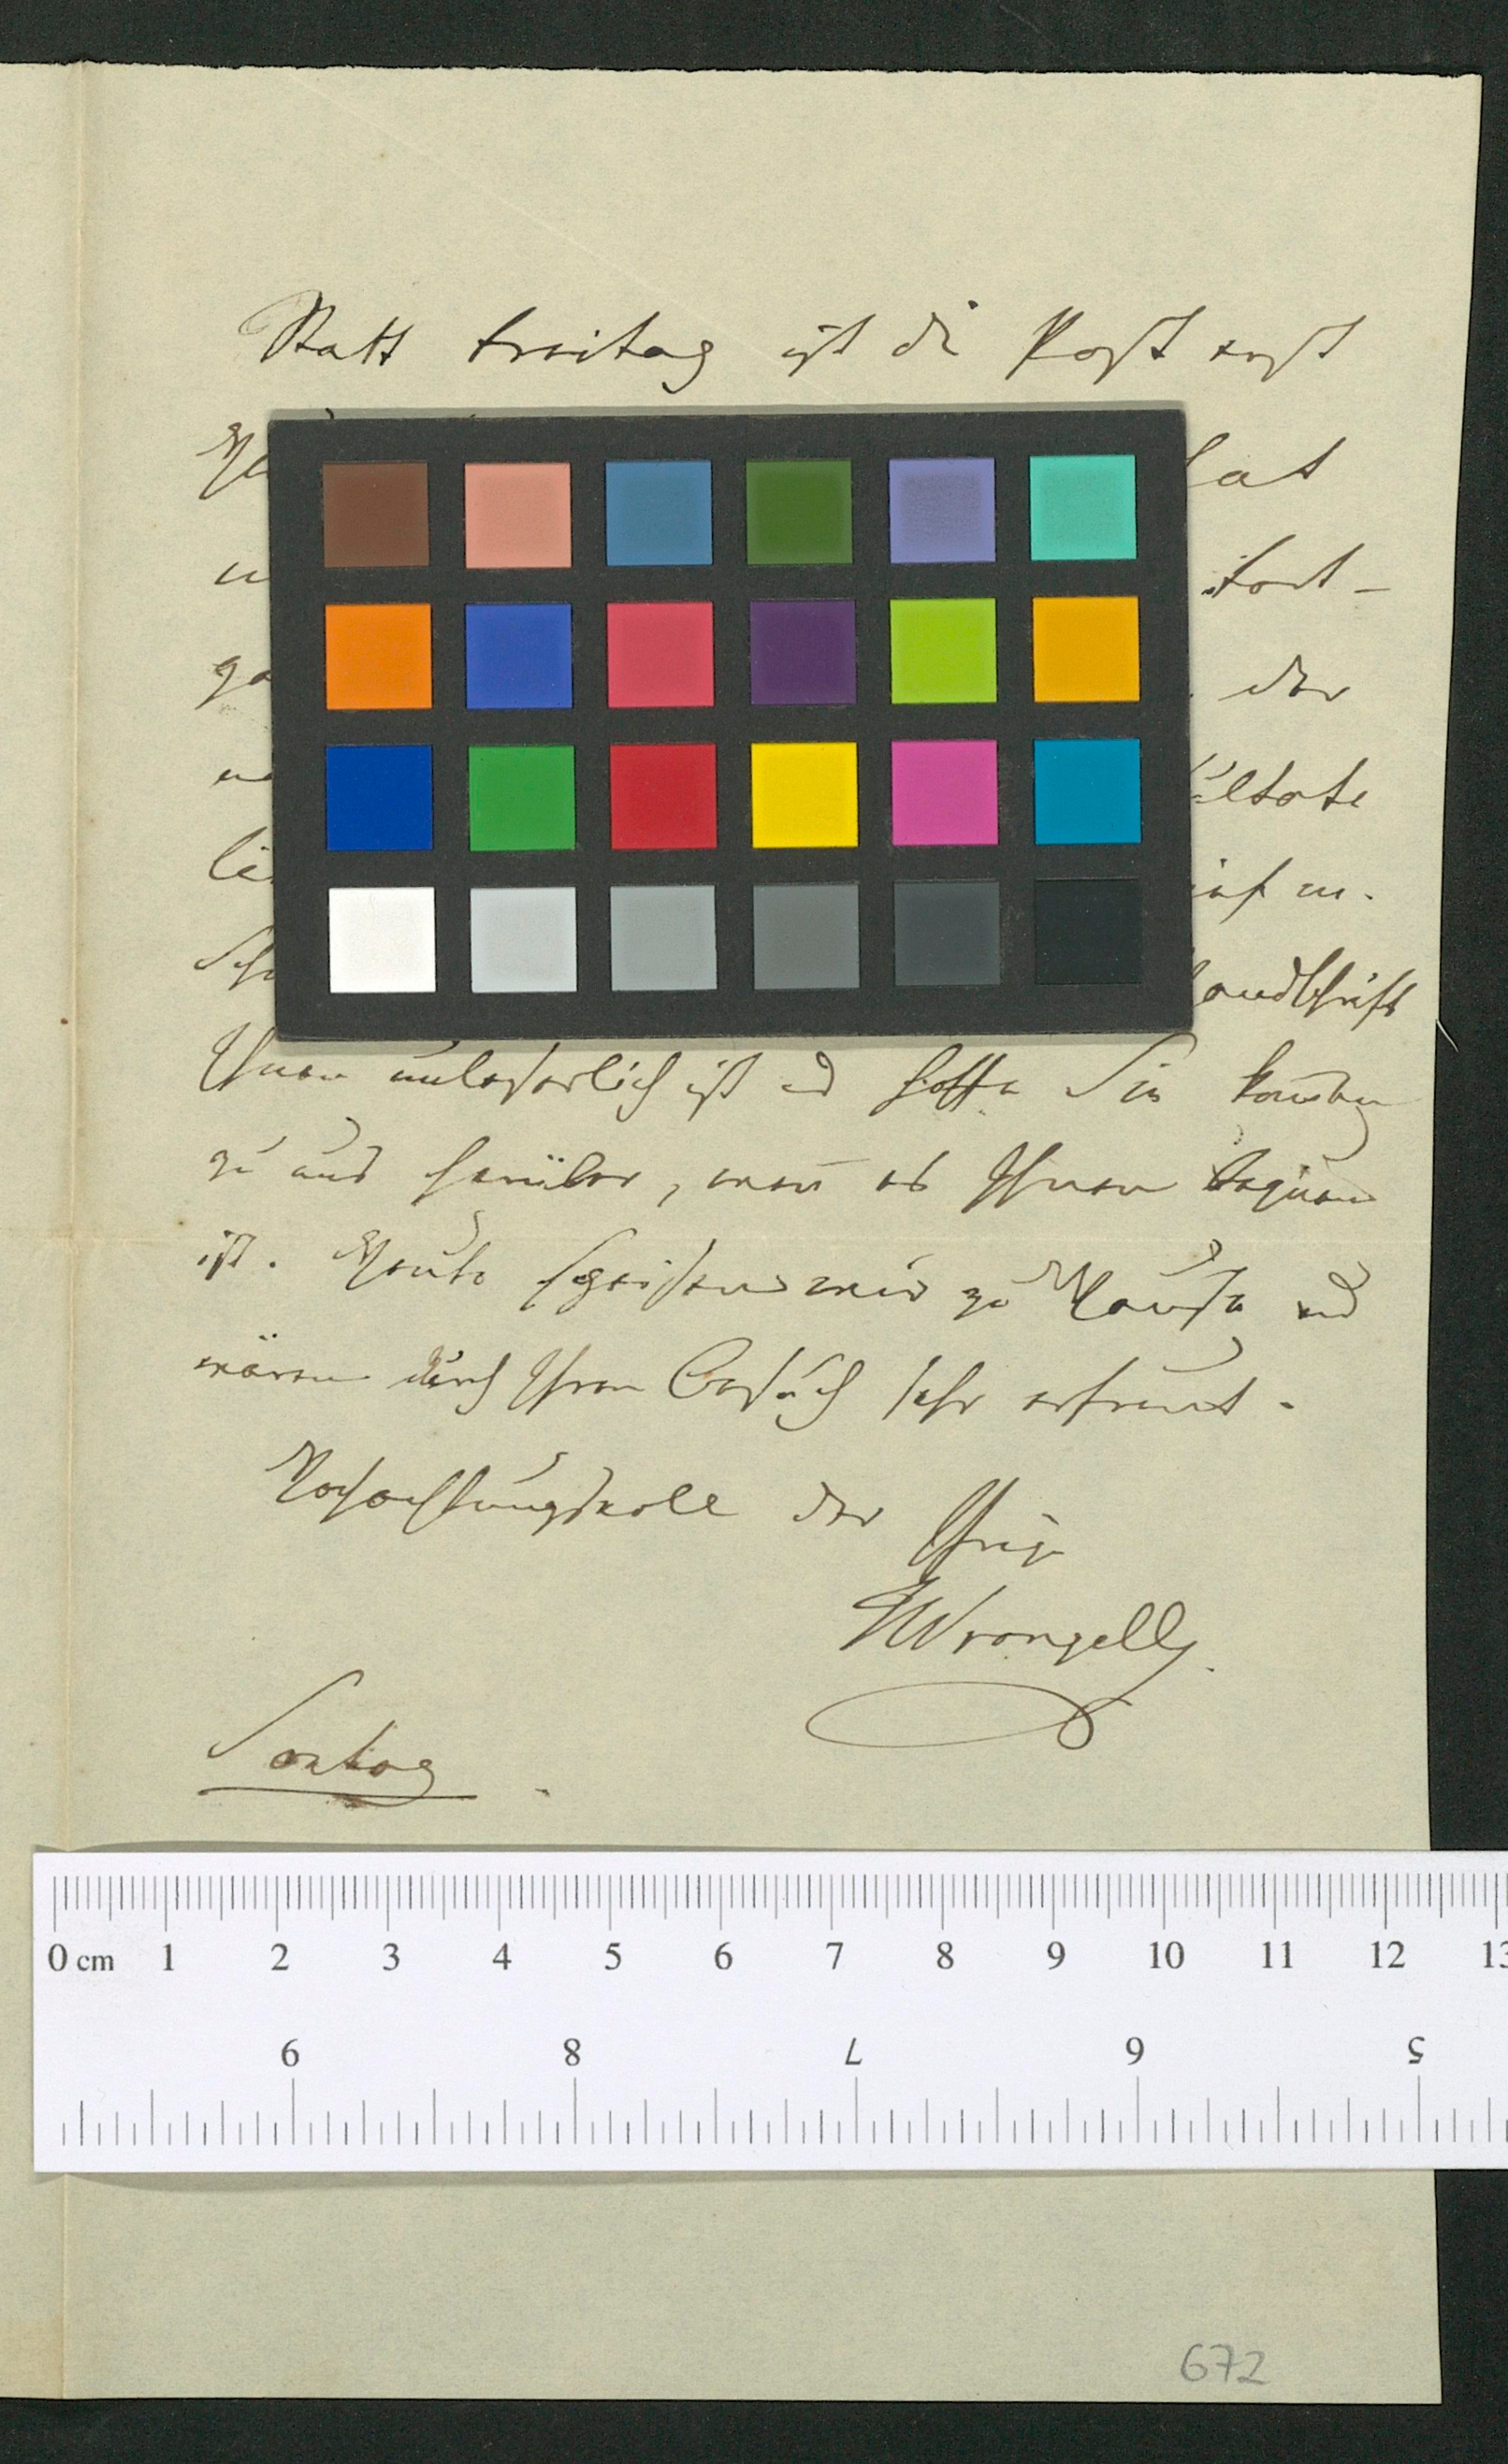 Statt Freitag ist die Post erst
He
hat
u
fort-
ge
der
ültote
lie
ief u.
Sch
Handschrift
Ihnen unleserlich ist und hoffe Sie kommen
zu uns herüber, wenn es Ihnen bequem
ist. Heute speisen wir zu Hause und
wären durch Ihren Besuch sehr erfreut.
Hochachtungsvoll der Ihrige
Wrangell.
Sontag
0 cm 1 2 3 4 5 6 7 8 9 10 11 12 13
9 8 7 6 5
672